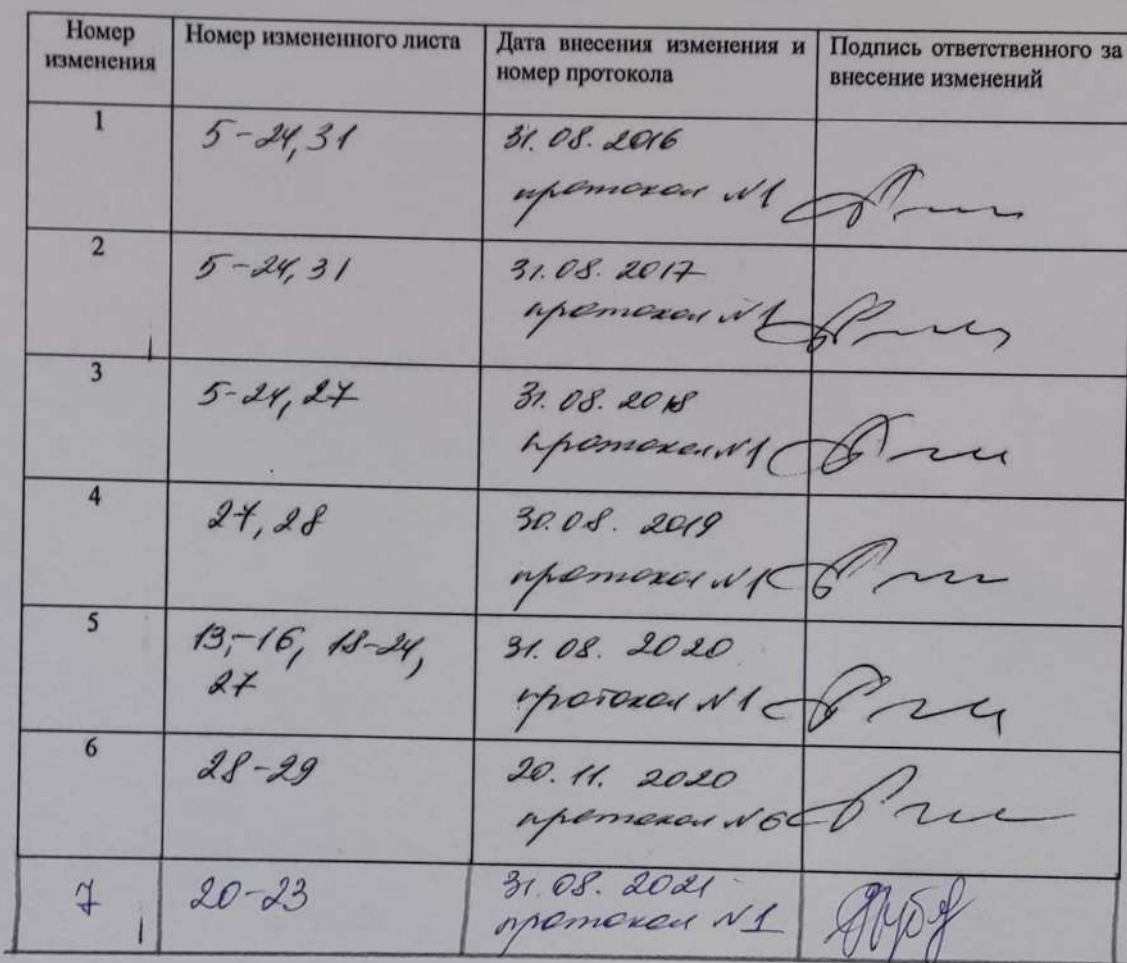 Номер изменения
Номер измененного листа
Дата внесения изменения и номер протокола
Подпись ответственного за внесение изменений
1
5-24, 31
31.08.2016
протокол №1
2
5-24, 31
31.08.2017
протокол №1
3
5-24, 27
31.08.2018
протокол №1
4
27, 28
30.08.2019
протокол №1
5
13,-16, 18-24,
27
31.08.2020
протокол №1
6
28-29
20.11.2020
протокол №6
7
20-23
31.08.2021
протокол №1